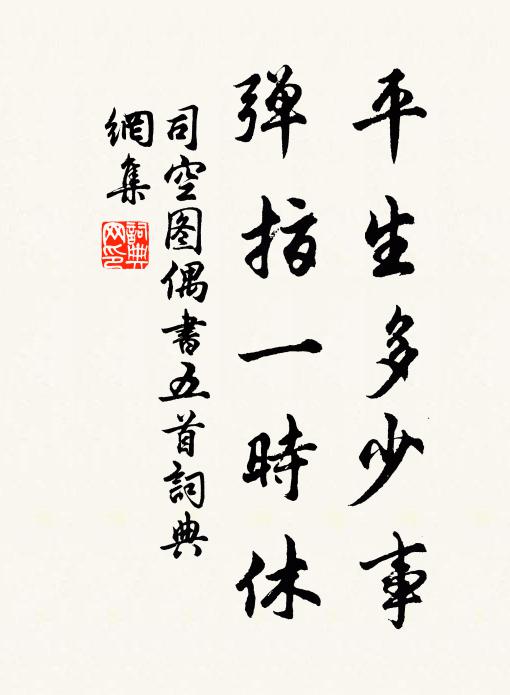 平生多少事
弹指一時休
司空图偶書五首詞典
網集
詞典
网印